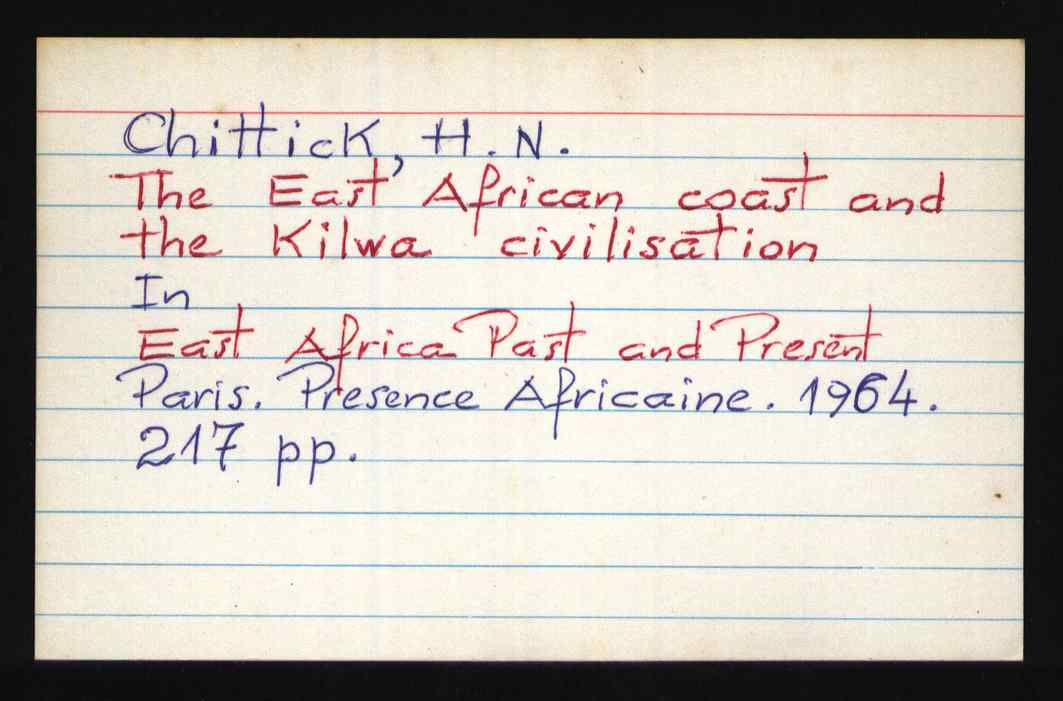 Chittick, H. N.
The East African coast and
the Kilwa civilisation
In
East Africa Past and Present
Paris. Presence Africaine. 1964.
217 pp.